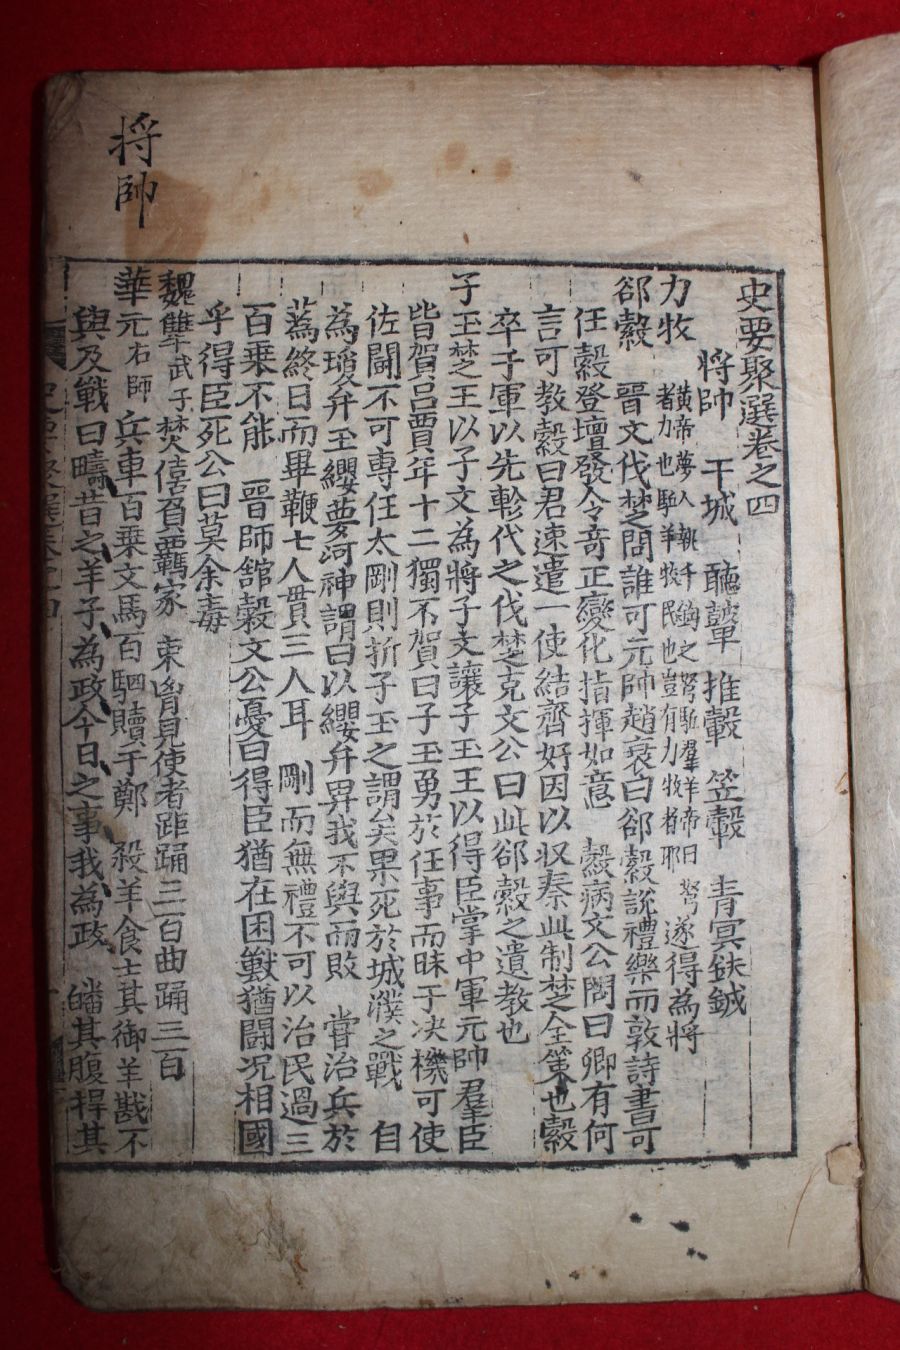 將帥
史要聚選卷之四
將帥 干城 聽鼙 推轂 笠轂 青冥鈇鉞
力牧 黃帝夢人執千鈞之弩驅羣羊帝曰弩
者力也驅羊牧民也豈有力牧者耶遂得為將
郤縠 晋文伐楚問誰可元帥趙衰曰郤縠說禮樂而敦詩書可
任縠登壇發令奇正變化指揮如意 縠病文公問曰卿有何
言可教縠曰君速遣一使結齊好因以収秦此制楚全策也縠
卒子軍以先軫代之伐楚克文公曰此郤縠之遺教也
子玉楚之王以子文為將子文讓子玉王以得臣掌中軍元帥羣臣
皆賀呂賈年十二獨不賀曰子玉勇於任事而昧于决機可使
佐鬪不可専任太剛則折子玉之謂矣果死於城濮之戰 自
為瓊弁玉纓夢河神謂曰以纓弁畀我不與而敗 嘗治兵於
蒍終日而畢鞭七人貫三人耳 剛而無禮不可以治民過三
百乗不能 晋師舘穀文公憂曰得臣猶在困獸猶鬪况相國
乎得臣死公曰莫余毒
魏犨武子焚僖負羈家 束胷見使者距踊三百曲踊三百
華元右師 兵車百乗文馬百駟贖于鄭 殺羊食士其御羊斟不
與及戰曰疇昔之羊子為政今日之事我為政 皤其腹捍其